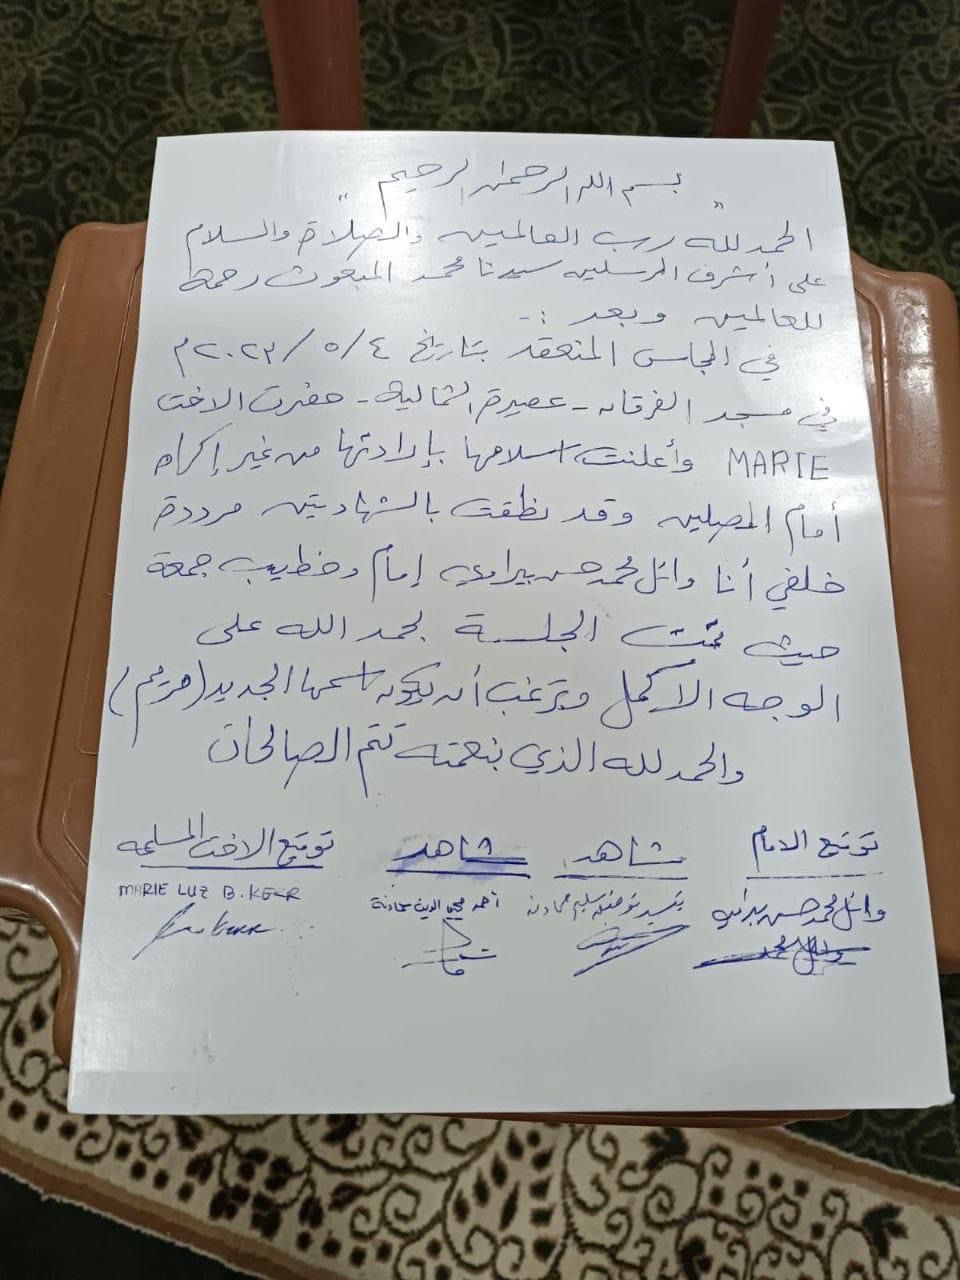 " بسم الله الرحمان الرحيم "
الحمد لله رب العالمين والصلاة والسلام
على أشرف المرسلين سيدنا محمد المبعوث رحمة
للعالمين وبعد :-
في المجلس المنعقد بتاريخ ٤/٥/٢٠٢٣م
في مسجد الفرقان - عصيرة الشمالية - حضرت الاخت
MARIE وأعلنت اسلامها بإرادتها من غير إكراه
أمام المصلين وقد نطقت بالشهادتين مرددة
خلفي أنا وائل محمد حسن بيراوي إمام وخطيب جمعة
حيث تمت الجلسة بحمد الله على
الوجه الأكمل وترغب أن يكون اسمها الجديد (مريم)
والحمد لله الذي بنعمته تتم الصالحات
توقيع الامام شاهد شاهد توقيع الاخت المسلمة
وائل محمد حسن بيراوي سليم حمادنة أحمد محي الدين MARIE LUZ B. KERR